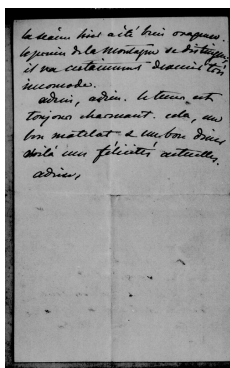 la séance hier a été bien orageuse.
le parti de la montagne se distingue,
il va certainement devenir très
incomode.
adieu, adieu. le temps est
toujours charmant. cela, un
bon matelat & un bon diner
voilà mes félicités actuelles.
adieu,